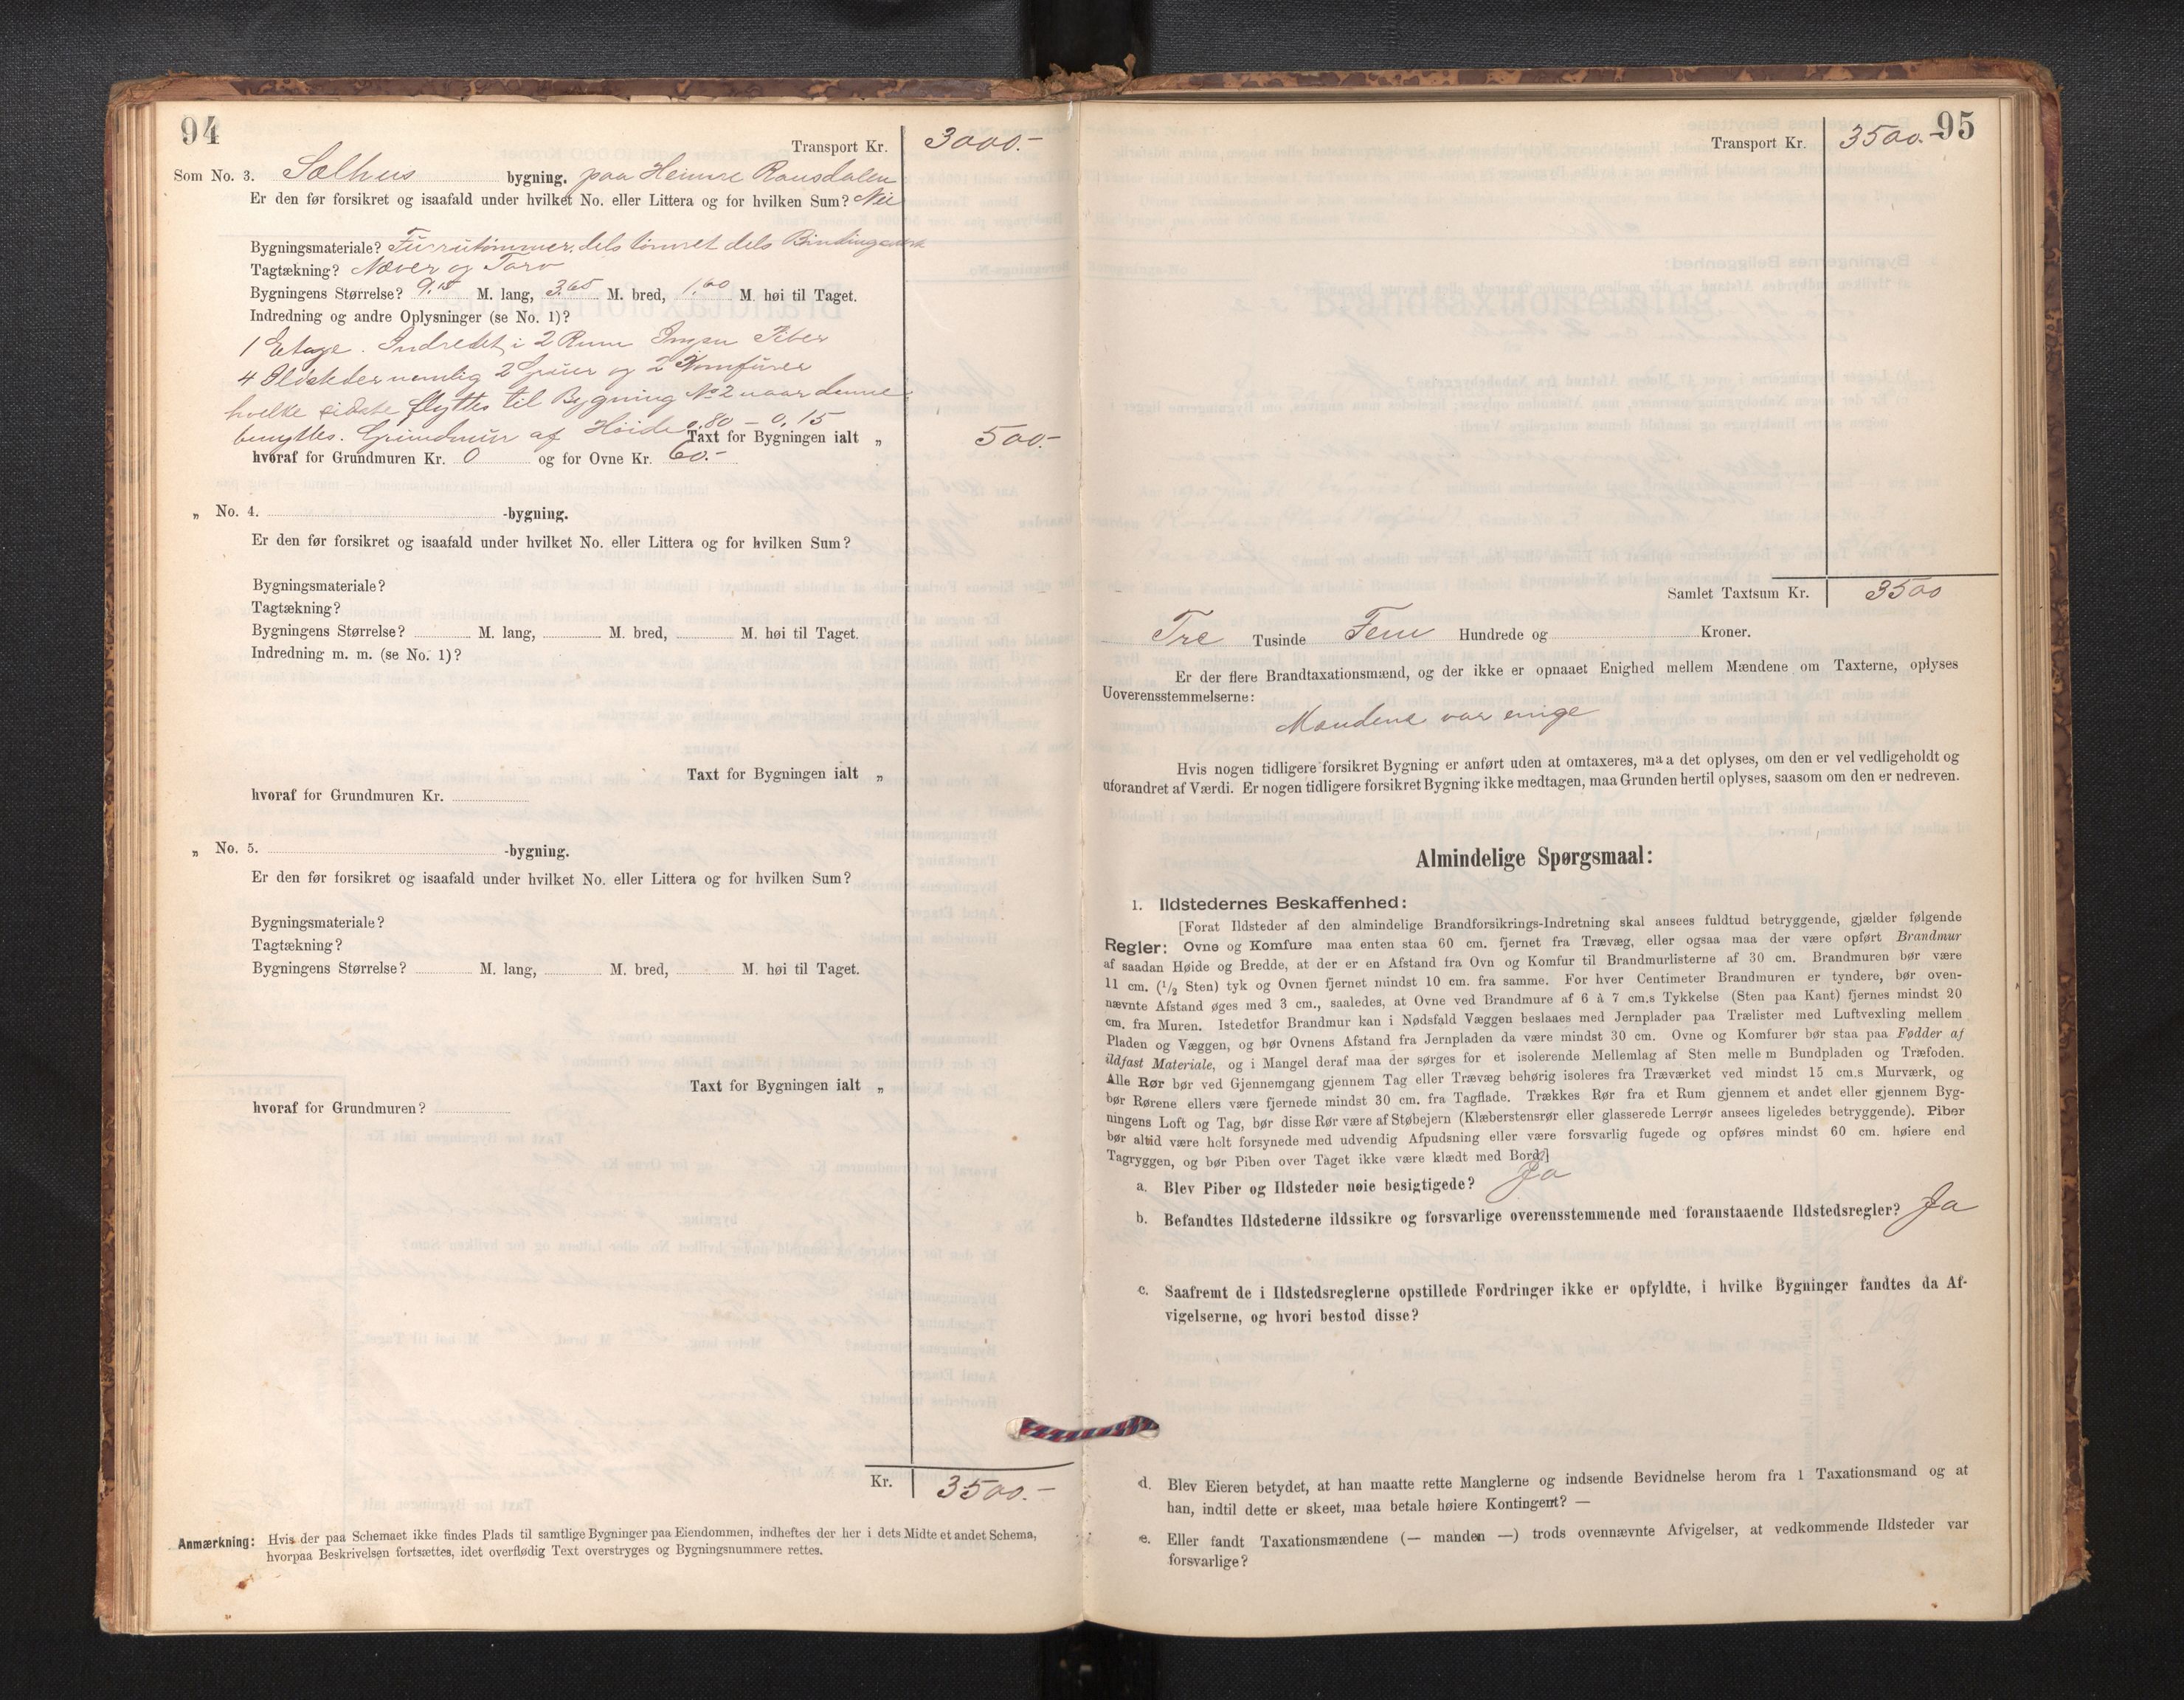 94
Transport Kr. 3000.-
Som No. 3. Sælhus bygning. paa Heimre Ransdalen
Er den før forsikret og isaafald under hvilket No. eller Littera og for hvilken Sum? Nei
Bygningsmateriale? Furrutømmer, dels tømret dels Bindingsværk
Tagtækning? Næver og Torv
Bygningens Størrelse? 9.15 M. lang, 3.65 M. bred, 1.60 M. høi til Taget.
Indredning og andre Oplysninger (se No. 1)?
1 Etage. Indredet i 2 Rum Ingen Piber
4 Ildsteder nemlig 2 Gruer og 2 Komfurer
hvilke sidste flyttes til Bygning No 2 naar denne
benyttes. Grundmur af Høide 0.80 – 0.15
Taxt for Bygningen ialt „ 500.-
hvoraf for Grundmuren Kr. 0 og for Ovne Kr. 60.-
„ No. 4. -bygning.
Er den før forsikret og isaafald under hvilket No. eller Littera og for hvilken Sum?
Bygningsmateriale?
Tagtækning?
Bygningens Størrelse? M. lang, M. bred, M. høi til Taget.
Indredning m. m. (se No. 1)?
Taxt for Bygningen ialt „
hvoraf for Grundmuren Kr.
„ No. 5. -bygning.
Er den før forsikret og isaafald under hvilket No. eller Littera og for hvilken Sum?
Bygningsmateriale?
Tagtækning?
Bygningens Størrelse? M. lang, M. bred, M. høi til Taget.
Taxt for Bygningen ialt „
hvoraf for Grundmuren?
Kr. 3500.-
Anmærkning: Hvis der paa Schemaet ikke findes Plads til samtlige Bygninger paa Eiendommen, indheftes der her i dets Midte et andet Schema,
hvorpaa Beskrivelsen fortsættes, idet overflødig Text overstryges og Bygningsnummere rettes.
95
Transport Kr. 3500.-
Samlet Taxtsum Kr. 3500
Tre Tusinde Fem Hundrede og Kroner.
Er der flere Brandtaxationsmænd, og der ikke er opnaaet Enighed mellem Mændene om Taxterne, oplyses
Uoverensstemmelserne:
Mændene var enige
Hvis nogen tidligere forsikret Bygning er anført uden at omtaxeres, maa det oplyses, om den er vel vedligeholdt og
uforandret af Værdi. Er nogen tidligere forsikret Bygning ikke medtagen, maa Grunden hertil oplyses, saasom om den er nedreven.
Almindelige Spørgsmaal:
1. Ildstedernes Beskaffenhed:
[Forat Ildsteder af den almindelige Brandforsikrings-Indretning skal ansees fuldtud betryggende, gjælder følgende
Regler: Ovne og Komfure maa enten staa 60 cm. fjernet fra Trævæg, eller ogsaa maa der være opført Brandmur
af saadan Høide og Bredde, at der er en Afstand fra Ovn og Komfur til Brandmurlisterne af 30 cm. Brandmuren bør være
11 cm. (1/2 Sten) tyk og Ovnen fjernet mindst 10 cm. fra samme. For hver Centimeter Brandmuren er tyndere, bør oven-
nævnte Afstand øges med 3 cm., saaledes, at Ovne ved Brandmure af 6 à 7 cm.s Tykkelse (Sten paa Kant) fjernes mindst 20
cm. fra Muren. Istedetfor Brandmur kan i Nødsfald Væggen beslaaes med Jernplader paa Trælister med Luftvexling mellem
Pladen og Væggen, og bør Ovnens Afstand fra Jernpladen da være mindst 30 cm. Ovne og Komfurer bør staa paa Fødder af
ildfast Materiale, og i Mangel deraf maa der sørges for et isolerende Mellemlag af Sten mellem Bundpladen og Træfoden.
Alle Rør bør ved Gjennemgang gjennem Tag eller Trævæg behørig isoleres fra Træværket ved mindst 15 cm.s Murværk, og
bør Rørene ellers være fjernede mindst 30 cm. fra Tagflade. Trækkes Rør fra et Rum gjennem et andet eller gjennem Byg-
ningens Loft og Tag, bør disse Rør være af Støbejern (Klæberstensrør eller glasserede Lerrør ansees ligeledes betryggende). Piber
bør altid være helt forsynede med udvendig Afpudsning eller være forsvarlig fugede og opføres mindst 60 cm. høiere end
Tagryggen, og bør Piben over Taget ikke være klædt med Bord.]
a. Blev Piber og Ildsteder nøie besigtigede? Ja
b. Befandtes Ildstederne ildssikre og forsvarlige overensstemmende med foranstaaende Ildstedsregler? Ja
c. Saafremt de i Ildstedsreglerne opstillede Fordringer ikke er opfyldte, i hvilke Bygninger fandtes da Af-
vigelserne, og hvori bestod disse?
d. Blev Eieren betydet, at han maatte rette Manglerne og indsende Bevidnelse herom fra 1 Taxationsmand og at
han, indtil dette er skeet, maa betale høiere Kontingent? —
e. Eller fandt Taxationsmændene (— manden —) trods ovennævnte Afvigelser, at vedkommende Ildsteder var
forsvarlige?